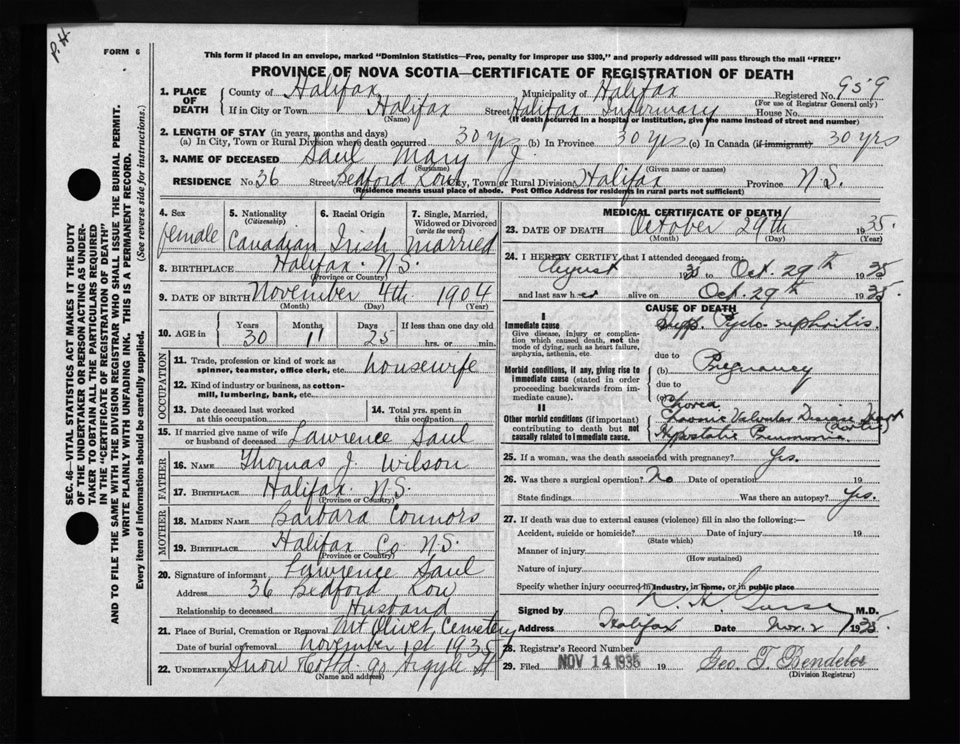 P.H.
FORM 6
This form if placed in an envelope, marked "Dominion Statistics—Free, penalty for improper use $300," and properly addressed will pass through the mail "FREE"
PROVINCE OF NOVA SCOTIA—CERTIFICATE OF REGISTRATION OF DEATH
SEC. 46—VITAL STATISTICS ACT MAKES IT THE DUTY
OF THE UNDERTAKER OR PERSON ACTING AS UNDERTAKER
TO OBTAIN ALL THE PARTICULARS REQUIRED
IN THE "CERTIFICATE OF REGISTRATION OF DEATH"
AND TO FILE THE SAME WITH THE DIVISION REGISTRAR WHO SHALL ISSUE THE BURIAL PERMIT.
WRITE PLAINLY WITH UNFADING INK. THIS IS A PERMANENT RECORD.
Every item of information should be carefully supplied. (See reverse side for instructions.)
1. PLACE OF DEATH County of Halifax Municipality of Halifax Registered No. 959
(For use of Registrar General only)
If in City or Town Halifax Street Halifax Infirmary House No.
(Name) (If death occurred in a hospital or institution, give the name instead of street and number)
2. LENGTH OF STAY (in years, months and days)
(a) In City, Town or Rural Division where death occurred 30 yrs (b) In Province 30 yrs (c) In Canada (if immigrant) 30 yrs
3. NAME OF DECEASED Saul Mary J.
(Surname) (Given name or names)
RESIDENCE No. 36 Street Bedford Row City, Town or Rural Division Halifax Province N.S.
(Residence means usual place of abode. Post Office Address for residents in rural parts not sufficient)
4. Sex female
5. Nationality (Citizenship) Canadian
6. Racial Origin Irish
7. Single, Married, Widowed or Divorced (write the word) Married
8. BIRTHPLACE Halifax N.S.
(Province or Country)
9. DATE OF BIRTH November 4th 1904
(Month) (Day) (Year)
10. AGE in Years 30 Months 11 Days 25 If less than one day old hrs. or min.
OCCUPATION
11. Trade, profession or kind of work as spinner, teamster, office clerk, etc. housewife
12. Kind of industry or business, as cotton-mill, lumbering, bank, etc.
13. Date deceased last worked at this occupation
14. Total yrs. spent in this occupation
15. If married give name of wife or husband of deceased Lawrence Saul
FATHER
16. NAME Thomas J. Wilson
17. BIRTHPLACE Halifax N.S.
(Province or Country)
MOTHER
18. MAIDEN NAME Barbara Connors
19. BIRTHPLACE Halifax Co N.S.
(Province or Country)
20. Signature of informant Lawrence Saul
Address 36 Bedford Row
Relationship to deceased Husband
21. Place of Burial, Cremation or Removal Mt Olivet Cemetery
Date of burial or removal November 1st 1935
22. UNDERTAKER Snow Co Ltd 90 Argyle St
(Name and address)
MEDICAL CERTIFICATE OF DEATH
23. DATE OF DEATH October 29th 1935
(Month) (Day) (Year)
24. I HEREBY CERTIFY that I attended deceased from:
August 1935 to Oct. 29th 1935
and last saw her alive on Oct. 29th 1935
CAUSE OF DEATH
I
Immediate cause
Give disease, injury or complication which caused death, not the mode of dying, such as heart failure, asphyxia, asthenia, etc.
Supp. Pyelo-nephritis
due to
Morbid conditions, if any, giving rise to immediate cause (stated in order proceeding backwards from immediate cause).
(b) Pregnancy
due to
(c)
II
Other morbid conditions (if important) contributing to death but not causally related to immediate cause.
Chorea
Chronic Valvular Disease Heart
Hypostatic Pneumonia
25. If a woman, was the death associated with pregnancy? Yes.
26. Was there a surgical operation? No Date of operation 19
State findings Was there an autopsy? Yes.
27. If death was due to external causes (violence) fill in also the following:—
Accident, suicide or homicide? Date of injury 19
(State which)
Manner of injury
(How sustained)
Nature of injury
Specify whether injury occurred in industry, in home, or in public place
Signed by M.D.
Address Halifax Date Nov. 2 1935
28. Registrar's Record Number
29. Filed NOV 14 1935 19 Geo. T. Bendelor
(Division Registrar)